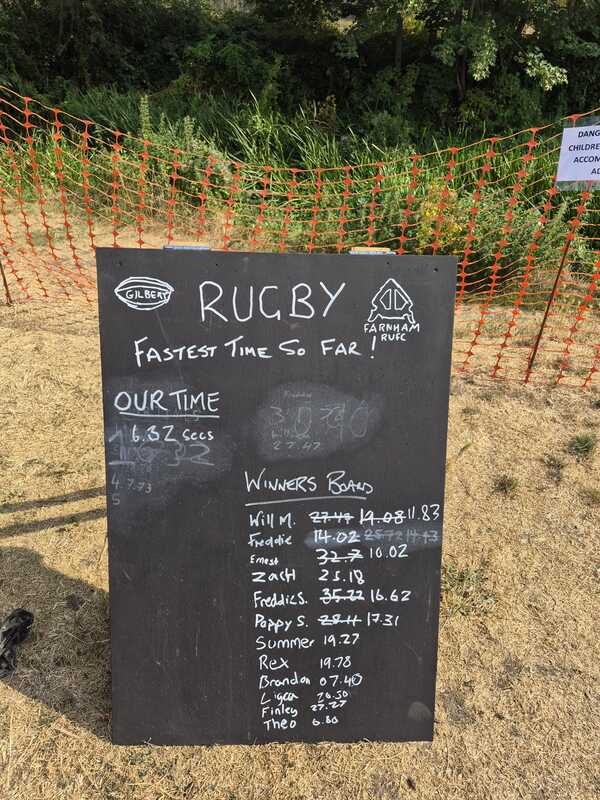 DANG
CHILDRE
ACCOM
AD
GILBERT
RUGBY
FARNHAM
RUFC
FASTEST TIME SO FAR!
OUR TIME
6.32 secs
4. 7.73
5
Freddie
27.47
WINNERS BOARD
Will M. 27.49 19.08 11.83
Freddie 14.02 25.72 14.43
Ernest 32.7 10.02
Zach 25.18
Freddie S. 35.22 16.62
Poppy S. 28.11 17.31
Summer 19.27
Rex 19.78
Brandon 07.40
20.50
Finley 27.27
Theo 6.80